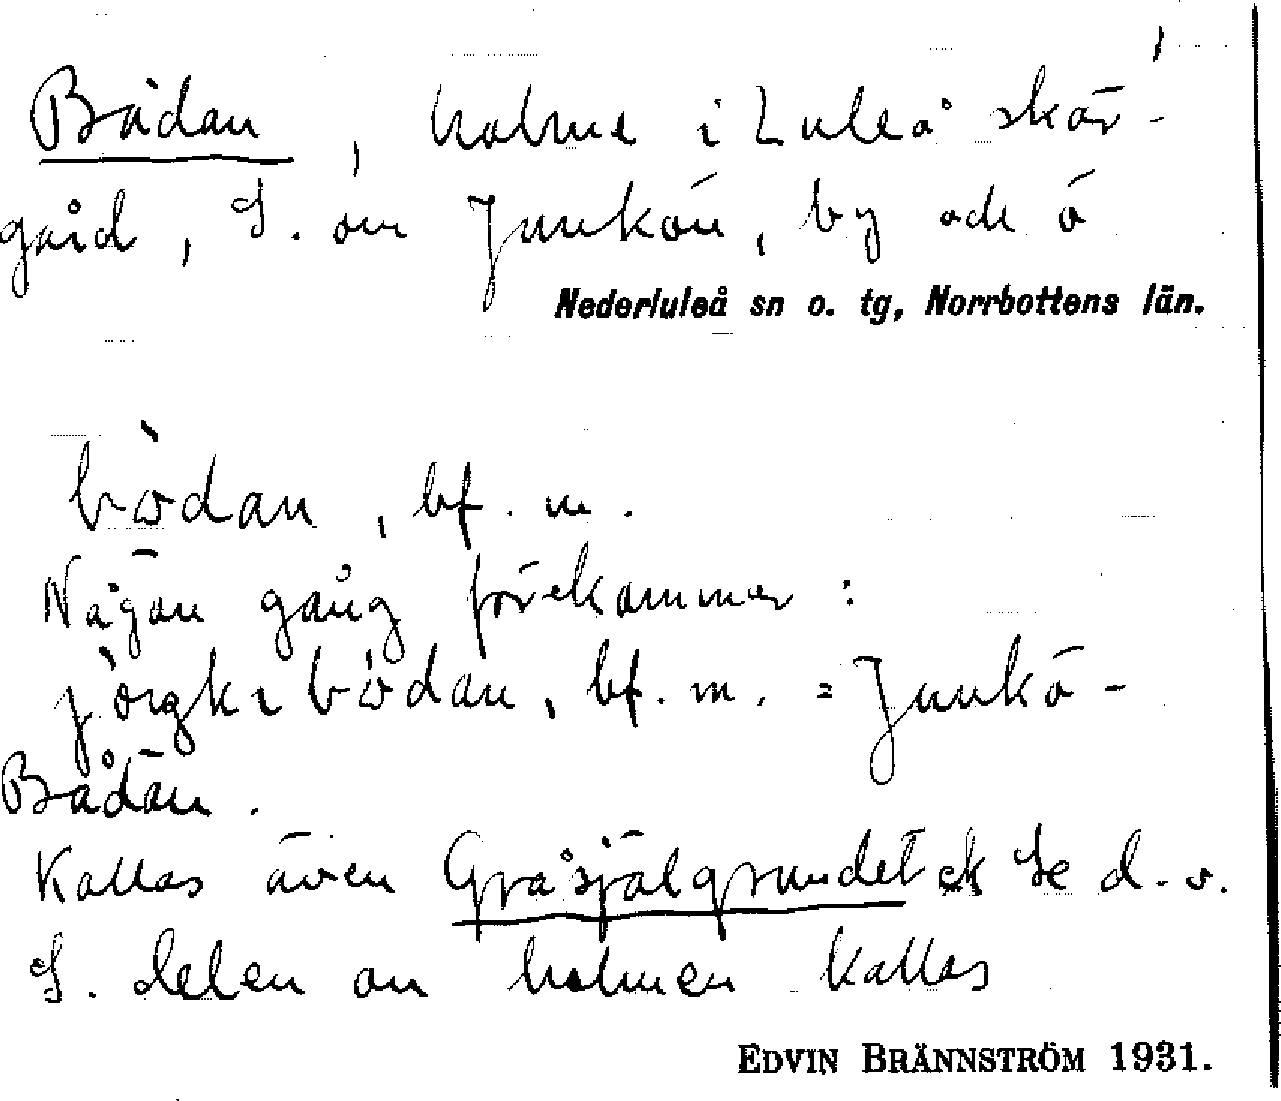 Bådan, holme i Luleå skär-
gård, S. om Junkön, by och ö
Nederluleå sn o. tg, Norrbottens län.
bòdan, bf. m.
Någon gång förekommer:
bòdan, bf. m. = Junkö-
Bådan.
Kallas även Gråsjälgrundet Se d. o.
S. delen av holmen kallas
EDVIN BRÄNNSTRÖM 1931.